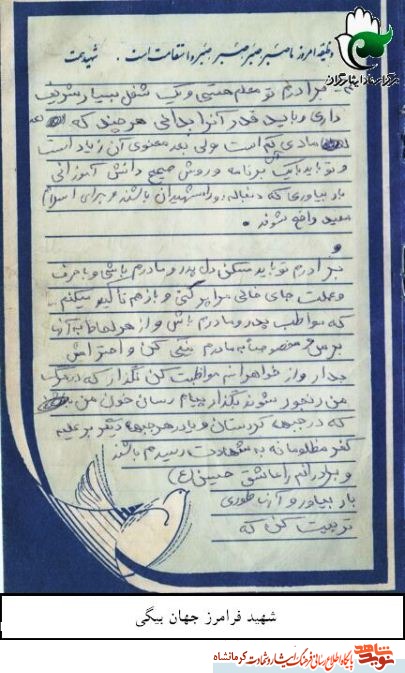 مرکز اسناد ایثارگران
وظیفه امروز ما صبر، صبر، صبر، صبر و استقامت است. شهید محبت
برادرم تو معلم هستی و یک شغل بسیار شریف
داری و باید قدر آنرا بدانی هر چند که
مادی کم است ولی بعد معنوی آن زیاد است
و تو باید با یک برنامه و روش صحیح دانش آموزانی
بار بیاوری که دنباله رو راه شهیدان باشند و برای اسلام
مفید واقع شوند.
و
برادرم تو باید مسکن دل پدر و مادرم باشی و با حرف
و عملت جای خالی مرا پر کنی و باز هم تاکید میکنم
که مواظب پدر و مادرم باش و از هر لحاظ به آنها
برس و مخصوصا به مادرم نیکی کن و احترامش
بدار و از خواهرانم مواظبت کن نگذار که در مرگ
من رنجور شوند بگذار پیام رسان خون من
که در جبهه کردستان و یا در هر جبهه دیگر بر علیه
کفر مظلومانه به شهادت رسیدم باشند
و برادرانم را عاشق حسین (ع)
بار بیاور و آنها طوری
تربیت کن که
شهید فرامرز جهان بیگی
نوید شاهد پایگاه اطلاع رسانی فرهنگ ایثار و شهادت کرمانشاه